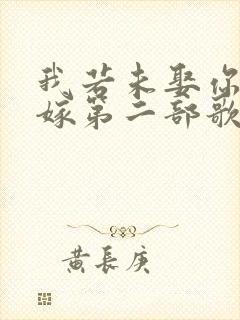 我若未娶你
嫁第二部歌
黄长庚